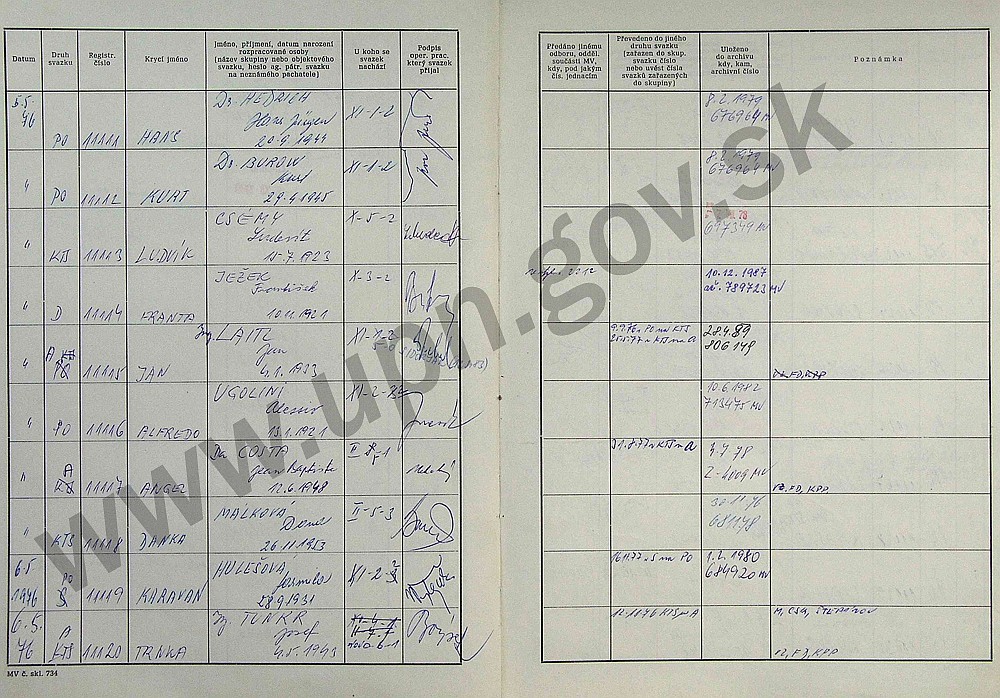 Datum
Druh svazku
Registr. číslo
Krycí jméno
Jméno, příjmení, datum narození
rozpracované osoby
(název skupiny nebo objektového
svazku, heslo ag. pátr. svazku
na neznámého pachatele)
U koho se svazek nachází
Podpis
oper. prac.
který svazek
přijal
Předáno jinému
odboru, odděl.
součásti MV,
kdy, pod jakým
čís. jednacím
Převedeno do jiného
druhu svazku
(zařazen do skup.
svazku číslo
nebo uvést čísla
svazků zařazených
do skupiny)
Uloženo
do archivu
kdy, kam,
archivní číslo
Poznámka
5.5. 76 PO 11111 HANS
Dr. HEDRICH
Hans Jürgen
20.9.1944
XI-1-2
8.2.1979
676964 MV
" PO 11112 KURT
Dr. BUROW
Kurt
29.4.1945
XI-1-2
8.2.1979
676964 MV
" KTS 11113 LUDVÍK
CSÉMY
Ludovít
11.7.1923
X-5-2
78
697349 MV
" D 11114 FRANTA
JEŽEK
František
10.11.1921
X-3-2
10.12.1987
789723 MV
" A 11115 JAN
Ing. LAITL
Jan
4.1.1953
XI-1-2
9.9.76 n PO na KTS
25.5.77 n KTS na A
28.4.89
806148
FD, KPP
" PO 11116 ALFREDO
UGOLINI
Alessio
13.1.1921
XI-2
10.6.1982
713475 MV
A
11117 ANGEL
Da COSTA
Jean Baptiste
12.6.1948
31.8.77 n KTS na A
3.7.78
Z-4009 MV
FD, KPP.
" KTS 11118 DANKA
MALKOVA
Dana
26.11.1953
II-5-3
30.11.76
68178
6.5 1976 PO 11119 KARAVAN
HULEŠOVÁ
Jarmila
28.9.1931
XI-2
16.11.77 n S na PO
1.2.1980
684920 MV
6.5. 76 A KTS 11120 TRNKA
Ing. TUNKR
Josef
4.5.1943
12.11.76 KTS na A
FD, KPP
MV č. skl. 734
www.upn.gov.sk